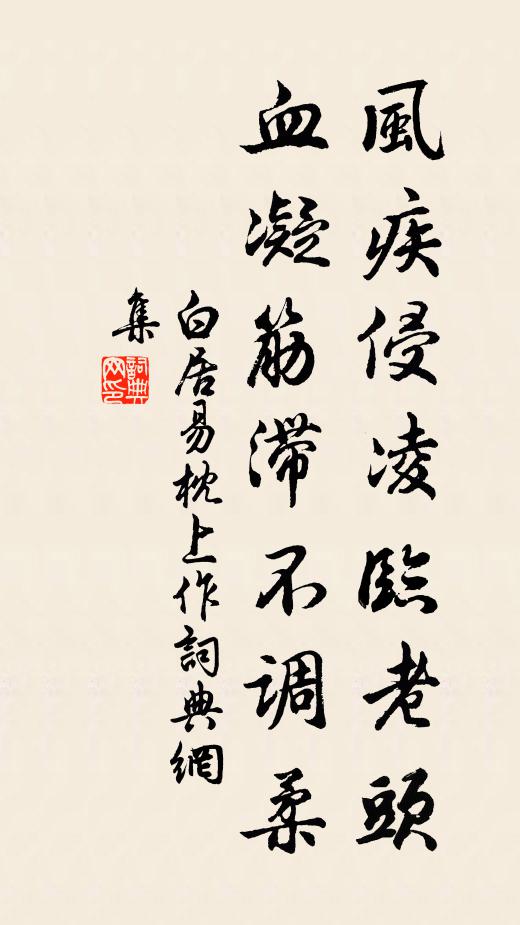 風疾侵凌臨老頭
血凝筋滯不調柔
白居易枕上作詞典網
集
詞典网印